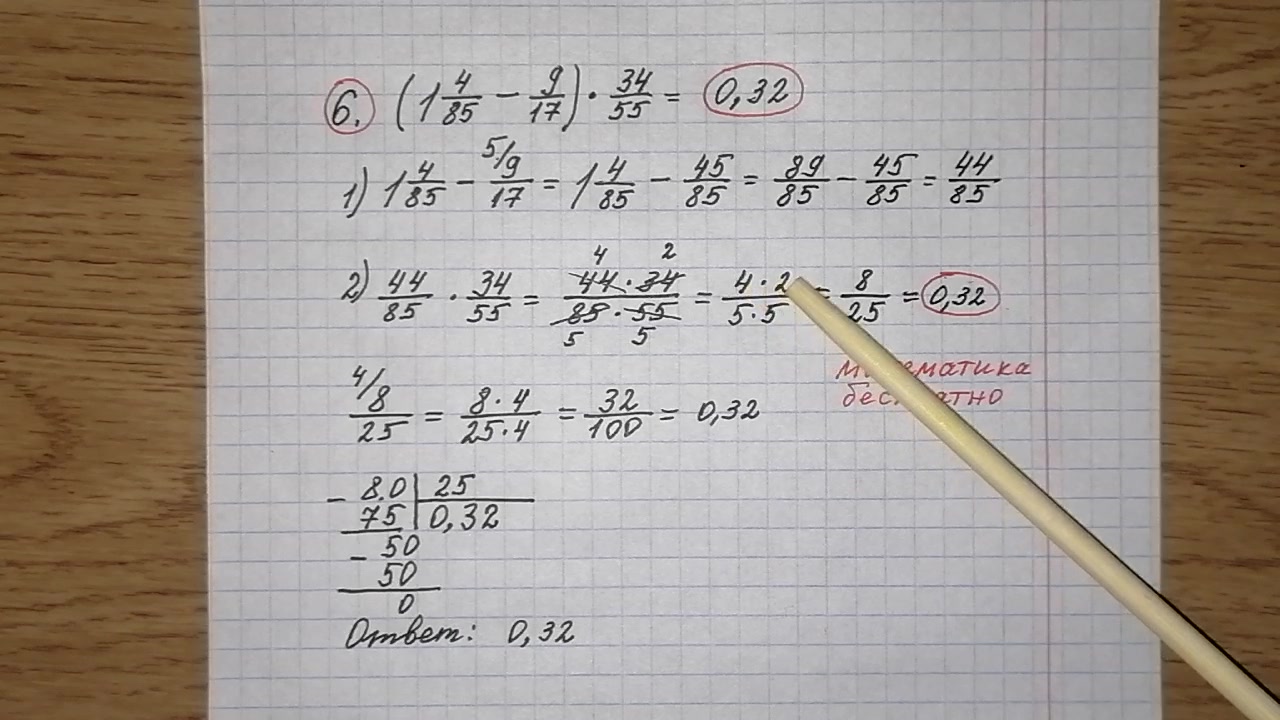 6. (1 4/85 − 9/17) · 34/55 = 0,32
1) 1 4/85 − 5/ 9/17 = 1 4/85 − 45/85 = 89/85 − 45/85 = 44/85
2) 44/85 · 34/55 = 4 2 44·34/85·55 5 5 = 4·2/5·5 = 8/25 = 0,32
Математика
бесплатно
4/ 8/25 = 8·4/25·4 = 32/100 = 0,32
− 8.0 | 25
75 | 0,32
− 50
50
0
Ответ: 0,32